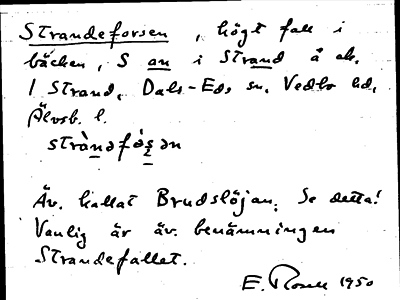 Strandeforsen, högt fall i
bäcken, S an i Strand å ak.
1 Strand, Dals-Eds sn, Vedbo hd,
Älvsb. l.
stràndəfåsən
Äv. kallat Brudslöjan. Se detta!
Vanlig är äv. benämningen
Strandefallet.
E. 1950